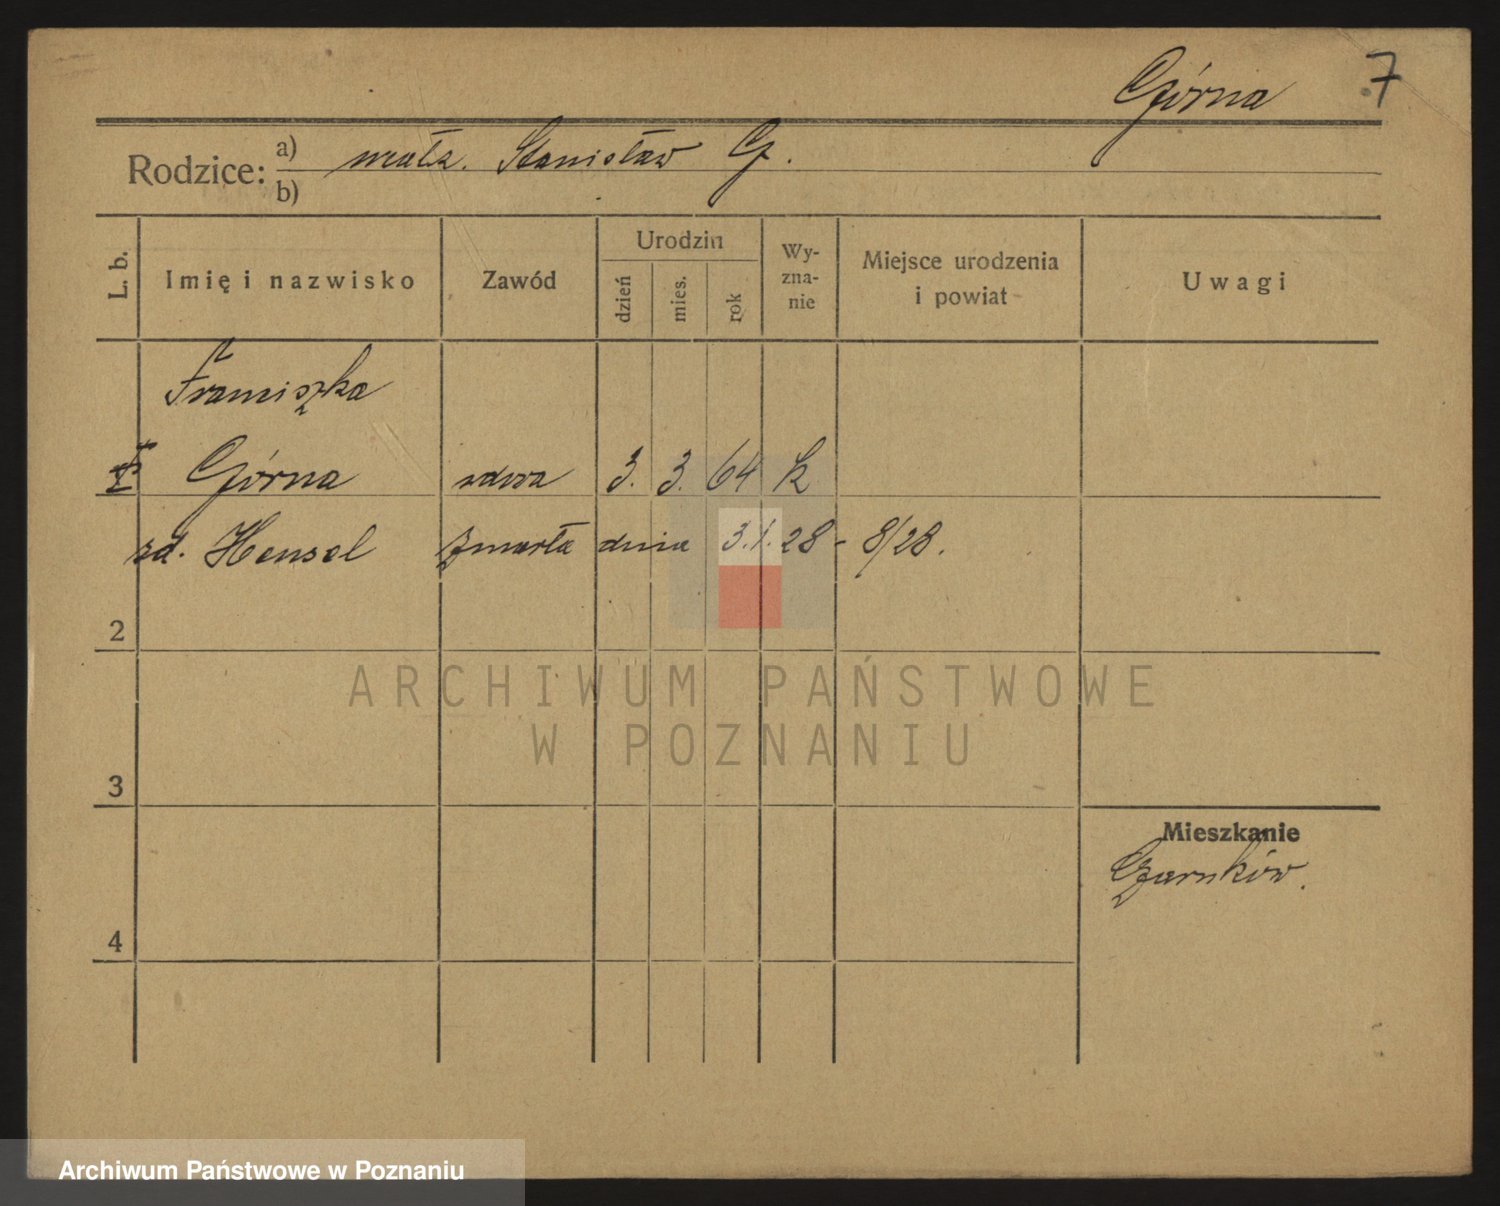 Górna 7
Rodzice: a) małż. Stanisław G.
b)
L. b. Imię i nazwisko Zawód Urodzin dzień mies. rok Wy-zna-nie Miejsce urodzenia i powiat Uwagi
Franciszka
Górna wdowa 3. 3. 64 k
zd. Hensel Zmarła dnia 3.1.28 - 8/28.
2
ARCHIWUM PAŃSTWOWE
W POZNANIU
3
Mieszkanie
Czarnków.
4
Archiwum Państwowe w Poznaniu